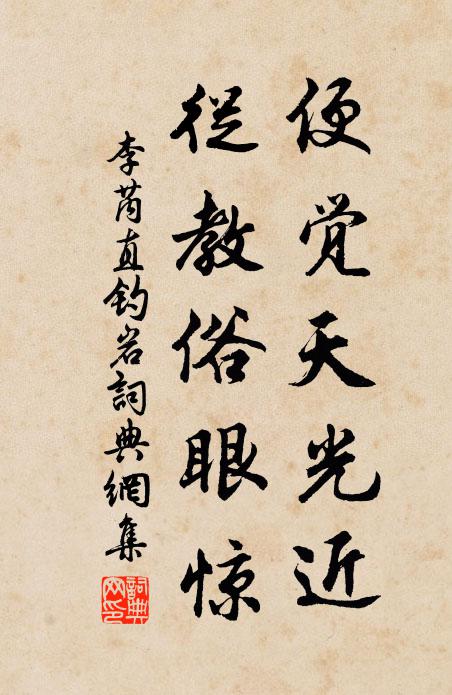 便觉天光近
從教俗眼惊
李芮直钓岩詞典網集
詞典